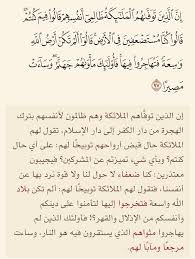 إِنَّ الَّذِينَ تَوَفَّاهُمُ الْمَلَائِكَةُ ظَالِمِي أَنفُسِهِمْ قَالُوا فِيمَ كُنتُمْ
قَالُوا كُنَّا مُسْتَضْعَفِينَ فِي الْأَرْضِ قَالُوا أَلَمْ تَكُنْ أَرْضُ اللَّهِ
وَاسِعَةً فَتُهَاجِرُوا فِيهَا فَأُولَئِكَ مَأْوَاهُمْ جَهَنَّمُ وَسَاءَتْ
مَصِيرًا ٩٧
إن الذين توفّاهم الملائكة وهم ظالمون لأنفسهم بترك
الهجرة من دار الكفر إلى دار الإسلام، تقول لهم
الملائكة حال قبض أرواحهم توبيخًا لهم: على أي حال
كنتم؟ وبأي شيء تميزتم عن المشركين؟ فيجيبون
معتذرين: كنا ضعفاء لا حول لنا ولا قوة ندفع بها عن
أنفسنا، فتقول لهم الملائكة توبيخًا لهم: ألم تكن بلاد
الله واسعة فتخرجوا إليها لتأمنوا على دينكم
وأنفسكم من الإذلال والقهر؟! فأولئك الذين لم
يهاجروا مثواهم الذي يستقرون فيه هو النار، وساءت
مرجعًا ومآبًا لهم.